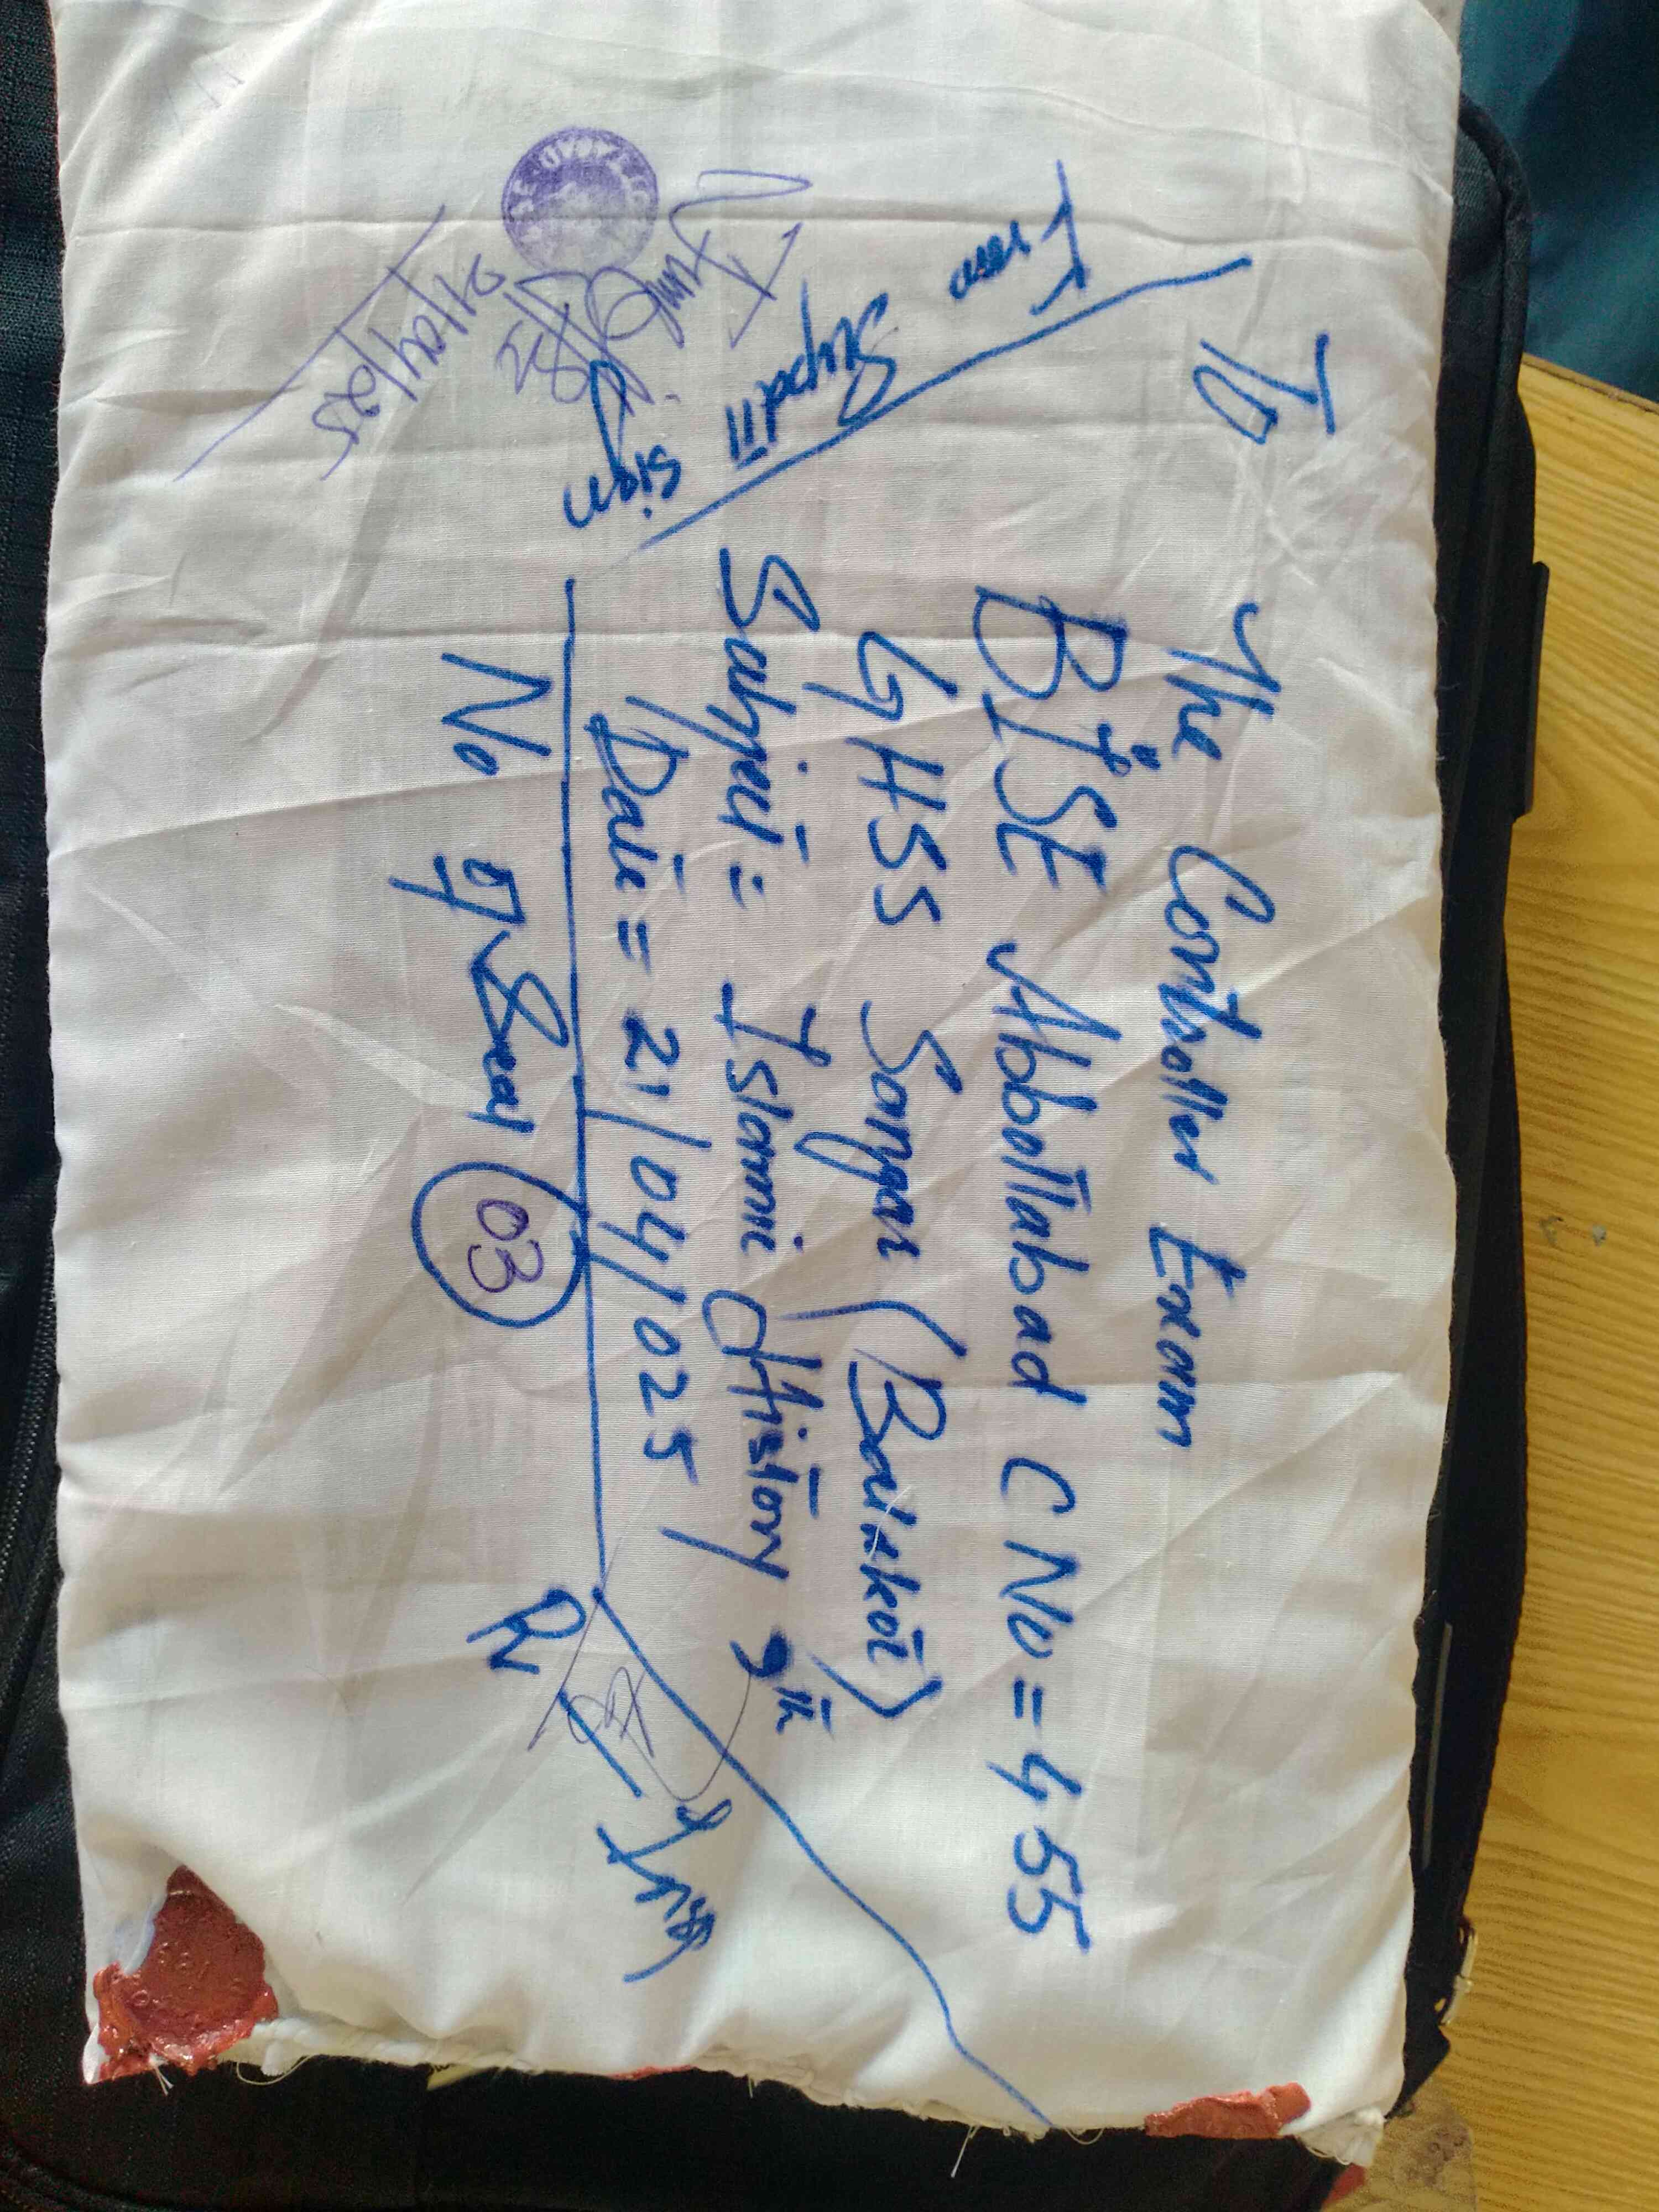 To
The Controller Exam
BISE Abbottabad C No = 455
GHSS Sangar (Balakot)
Subject = Islamic History 9th
Date = 21/04/025
No of Seal 03
From
Supdtt
Sign
21/04/025